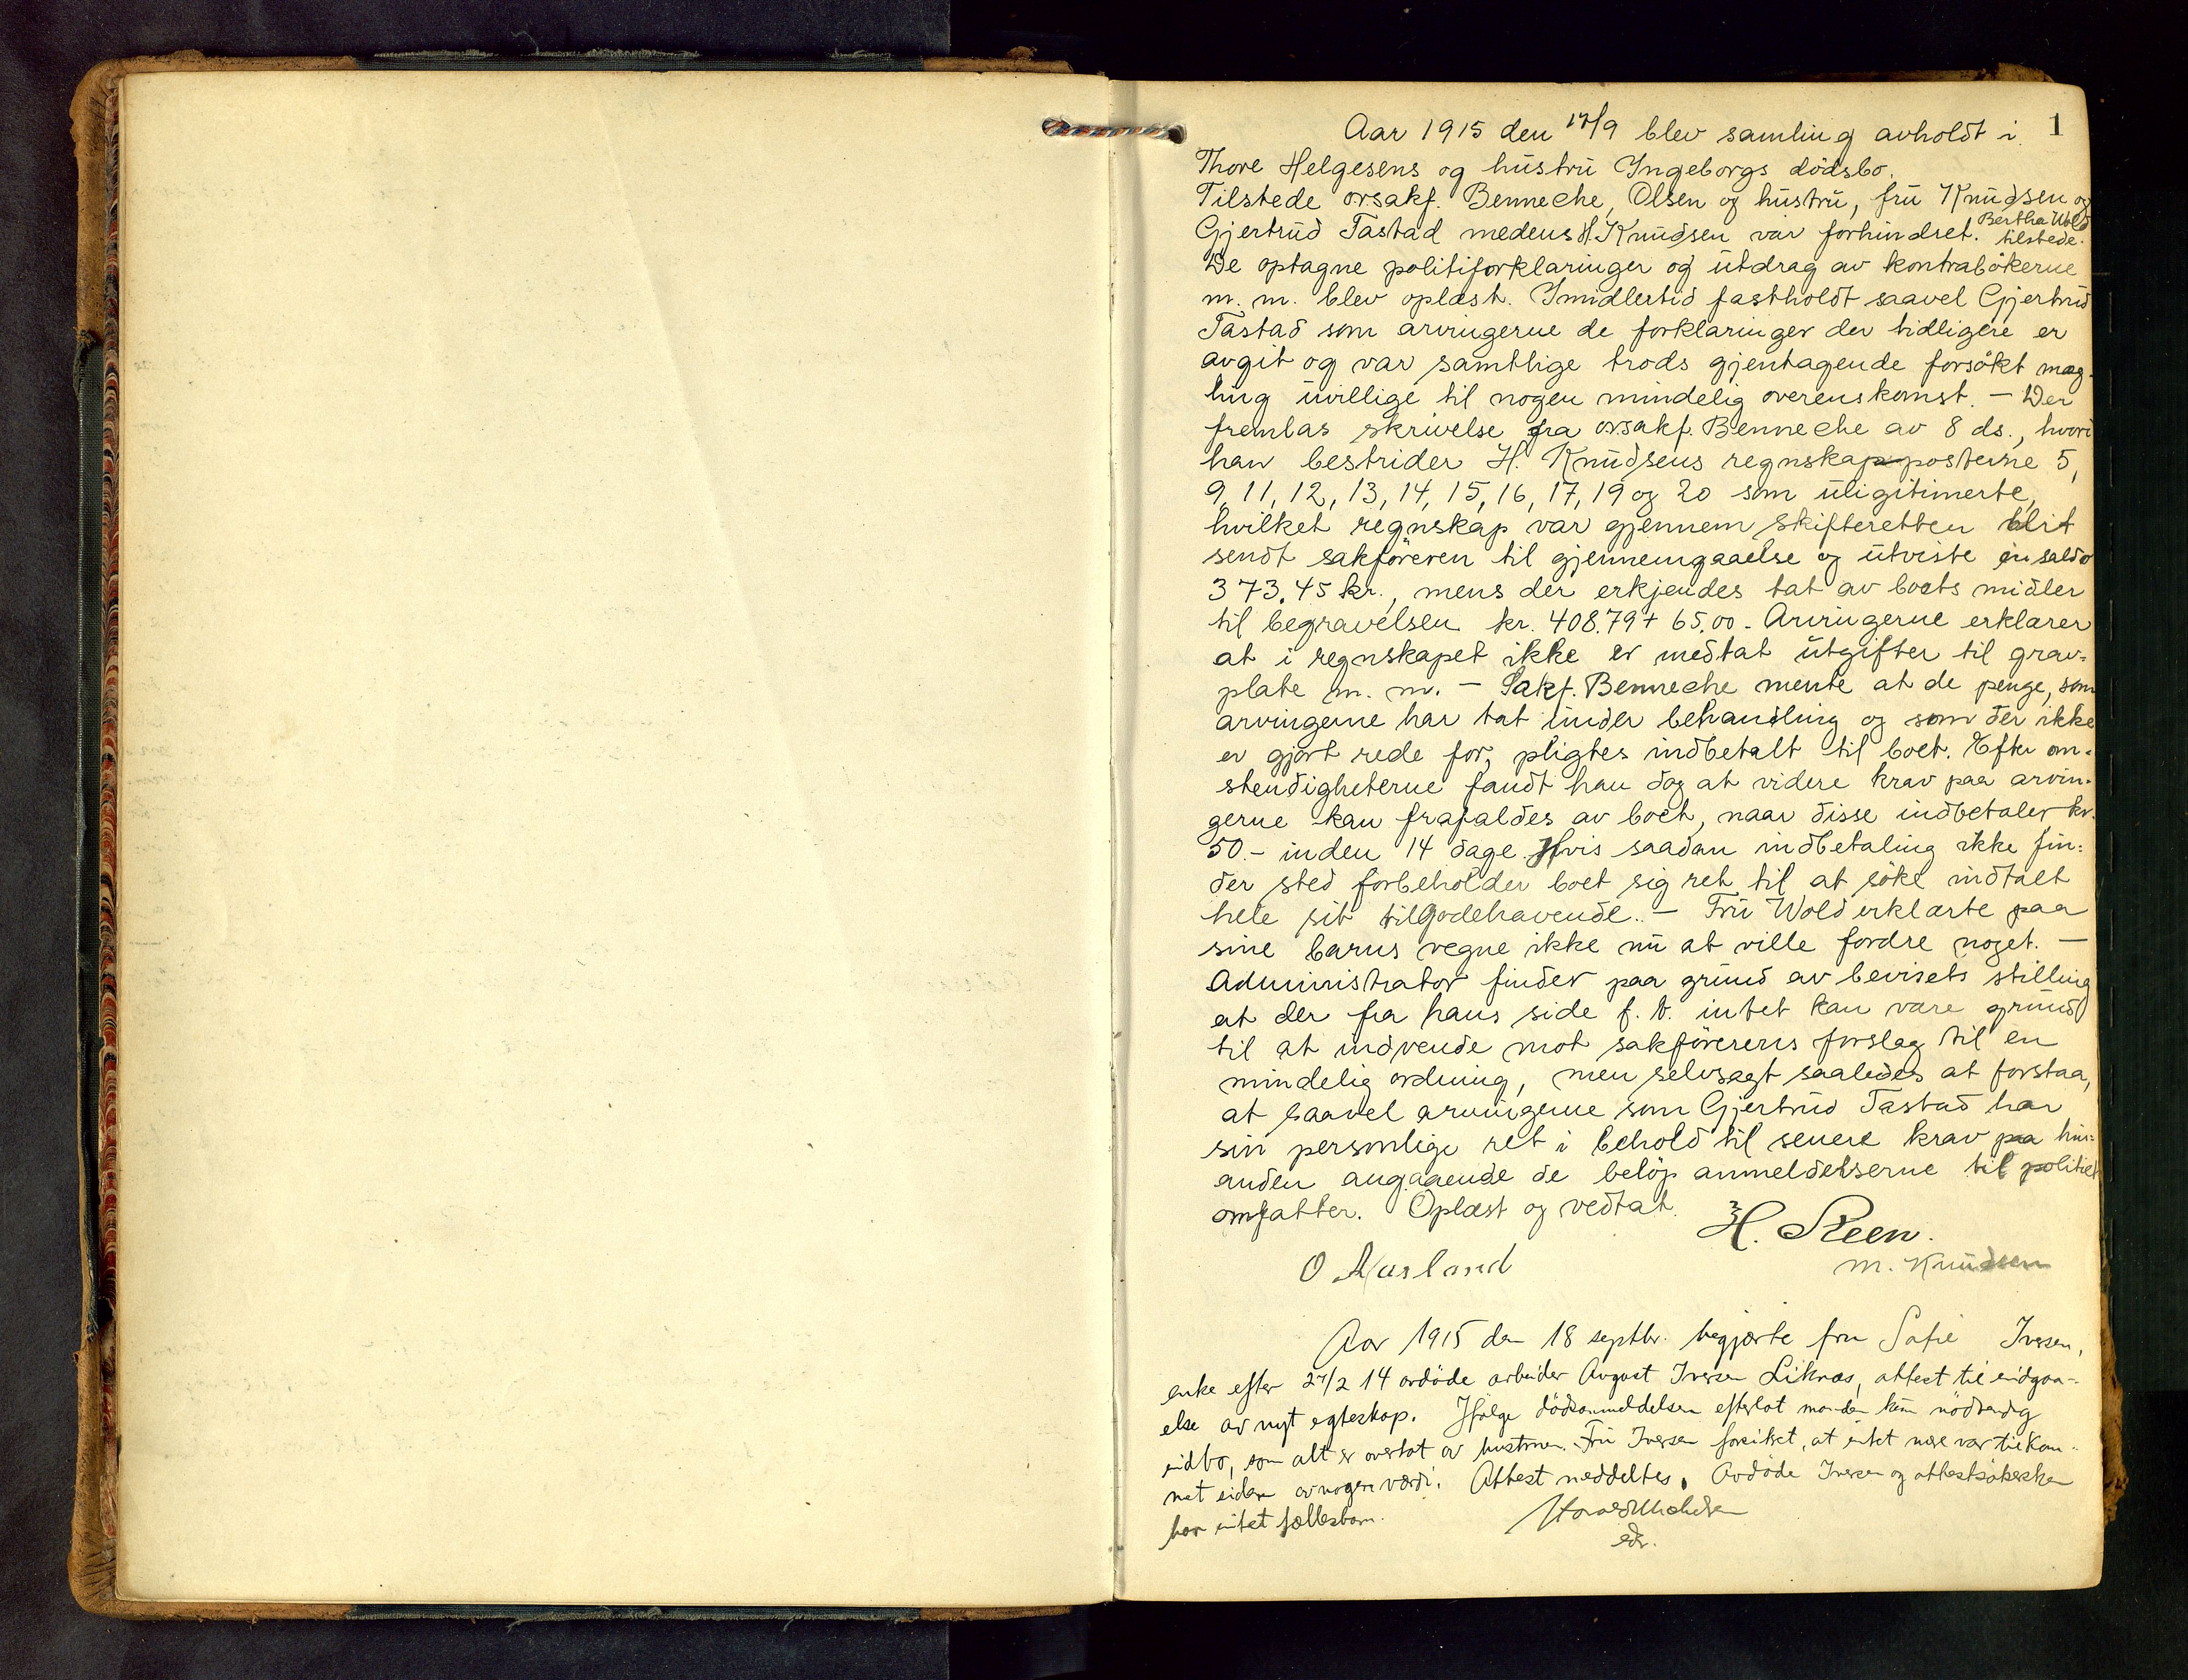 1
Aar 1915 den 17/9 blev samling avholdt i
Thore Helgesens og hustru Ingeborgs dödsbo.
Tilstede orsakf. Benneche, Olsen og hustru, fru Knudsen og
Bertha Wold
Gjertrud Tastad medens H. Knudsen var forhindret. tilstede.
De optagne politiforklaringer og utdrag av kontrabökerne
m. m. blev oplæst. Imidlertid fastholdt saavel Gjertrud
Tastad som arvingerne de forklaringer der tidligere er
avgit og var samtlige trods gjentagende forsökt mæg-
ling uvillige til nogen mindelig overenskomst. – Der
fremlas skrivelse fra orsakf. Benneche av 8 ds., hvori
han bestrider H. Knudsens regnskapposterne 5,
9, 11, 12, 13, 14, 15, 16, 17, 19 og 20 som uligitimerte,
hvilket regnskap var gjennem skifteretten blit
sendt sakföreren til gjennemgaaelse og utviste en saldo
373.45 kr., mens der erkjendes tat av boets midler
til begravelsen kr. 408.79 + 65.00 - Arvingerne erklærer
at i regnskapet ikke er medtat utgifter til grav=
plate m. m. – Sakf. Benneche mente at de penge, som
arvingerne har tat under behandling og som der ikke
er gjort rede for, pligtes indbetalt til boet. Efter om=
stendigheterne fandt han dog at videre krav paa arvin=
gerne kan frafaldes av boet, naar disse indbetaler kr.
50.- inden 14 dage. Hvis saadan indbetaling ikke fin=
der sted forbeholder boet sig ret til at söke indtalt
hele sit tilgodehavende. – Fru Wold erklærte paa
sine barns vegne ikke nu at ville fordre noget. –
Administrator finder paa grund av bevisets stilling
at der fra hans side f. t. intet kan være grund
til at indvende mot sakförerens forslag til en
mindelig ordning, men selvsagt saaledes at forstaa,
at saavel arvingerne som Gjertrud Tastad har
sin personlige ret i behold til senere krav paa hin=
anden angaaende de belöp anmeldelserne til politiet
omfatter. Oplæst og vedtat.
H. Steen.
O Aarland
M. Knudsen
Aar 1915 den 18 septbr. begjærte fru Sofie Iversen,
enke efter 27/2 14 avdöde arbeider August Iversen Liknæs, attest til indgaa-
else av nyt egteskap. Ifölge dödsanmeldelsen efterlot manden kun nödvendig
indbo, som alt er overtat av hustruen. Fru Iversen forsikret, at intet mere var tilkom-
met eiden av nogen værdi. Attest meddeltes. Avdöde Iversen og attestsökersken
har intet fællesbarn.
edr.